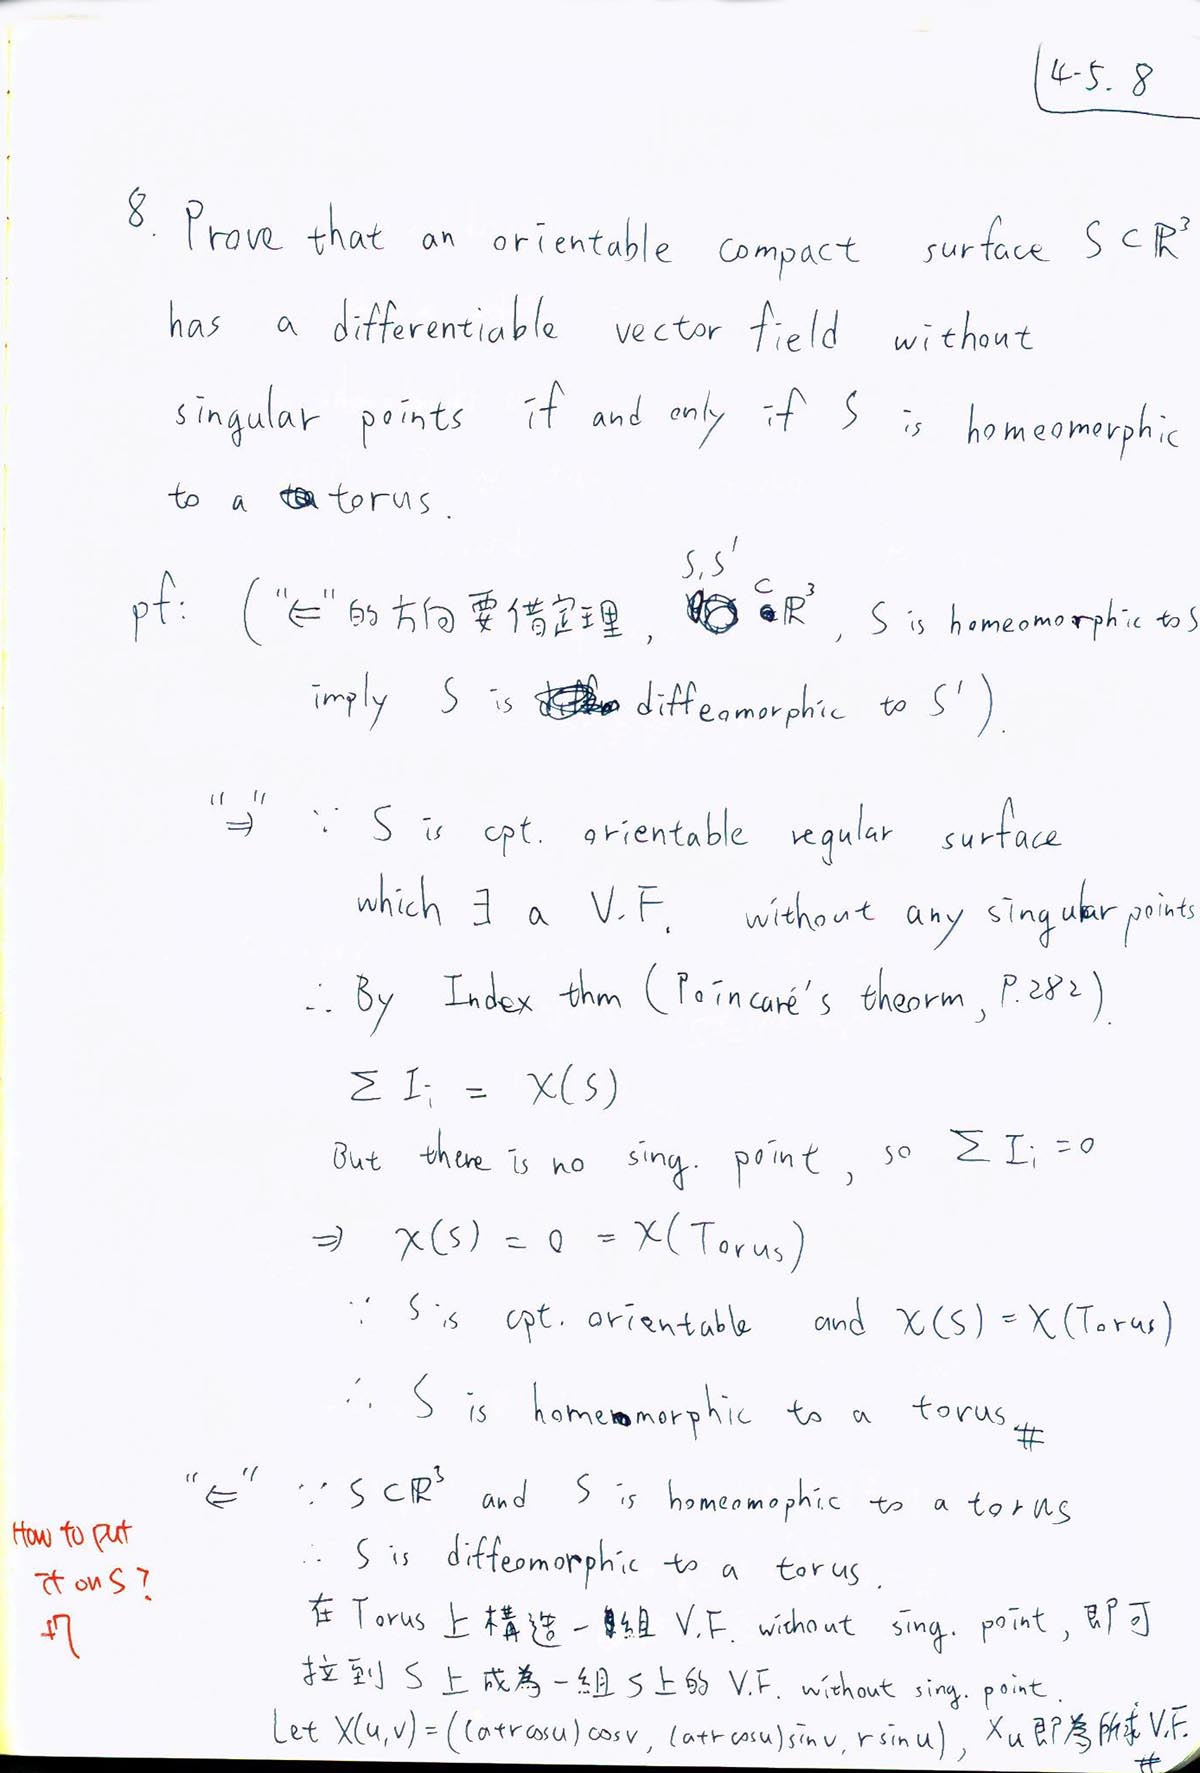 4-5. 8
8. Prove that an orientable compact surface S ⊂ ℝ³
has a differentiable vector field without
singular points if and only if S is homeomorphic
to a torus.
S, S'
pf: ("⇐"的方向要借定理, ⊂ ℝ³, S is homeomorphic to S
imply S is diffeomorphic to S').
"⇒" ∵ S is cpt. orientable regular surface
which ∃ a V.F. without any singular points
∴ By Index thm (Poincaré's theorm, P.282).
Σ Iᵢ = χ(S)
But there is no sing. point, so Σ Iᵢ = 0
⇒ χ(S) = 0 = χ(Torus)
∵ S is cpt. orientable and χ(S) = χ(Torus)
∴ S is homeomorphic to a torus #
"⇐" ∵ S ⊂ ℝ³ and S is homeomophic to a torus
How to put
it on S?
+7
∴ S is diffeomorphic to a torus.
在 Torus 上構造一組 V.F. without sing. point, 即可
拉到 S 上成為一組 S 上的 V.F. without sing. point.
Let X(u,v) = ((a+r cosu)cosv, (a+r cosu)sinv, r sinu), Xᵤ 即為所求 V.F. #